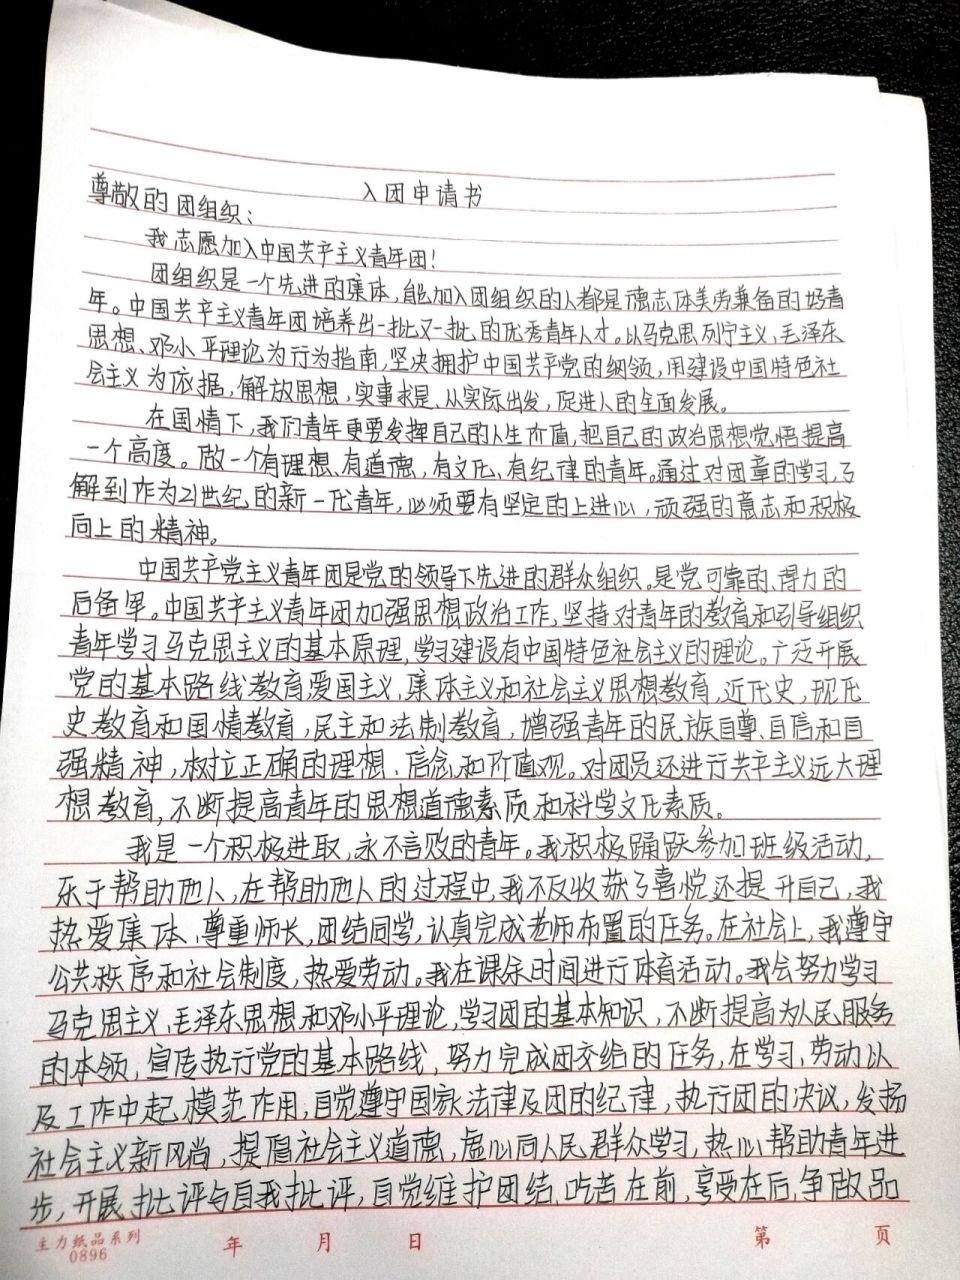 入团申请书
尊敬的团组织：
我志愿加入中国共产主义青年团！
团组织是一个先进的集体，能加入团组织的人都是德志体美劳兼备的好青
年。中国共产主义青年团培养出一批又一批的优秀青年人才。以马克思列宁主义、毛泽东
思想、邓小平理论为行为指南，坚决拥护中国共产党的纲领，用建设中国特色社
会主义为依据，解放思想，实事求是、从实际出发，促进人的全面发展。
在国情下，我们青年更要发挥自己的人生价值，把自己的政治思想觉悟提高
一个高度。做一个有理想、有道德，有文化、有纪律的青年。通过对团章的学习，了
解到作为21世纪的新一代青年，必须要有坚定的上进心，顽强的意志和积极
向上的精神。
中国共产党主义青年团是党的领导下先进的群众组织。是党可靠的、得力的
后备军。中国共产主义青年团加强思想政治工作，坚持对青年的教育和引导组织
青年学习马克思主义的基本原理，学习建设有中国特色社会主义的理论。广泛开展
党的基本路线教育爱国主义、集体主义和社会主义思想教育，近代史，现代
史教育和国情教育，民主和法制教育，增强青年的民族自尊、自信和自
强精神，树立正确的理想、信念和价值观。对团员还进行共产主义远大理
想教育，不断提高青年的思想道德素质和科学文化素质。
我是一个积极进取，永不言败的青年。我积极踊跃参加班级活动，
乐于帮助他人，在帮助他人的过程中，我不仅收获了喜悦还提升自己，我
热爱集体、尊重师长，团结同学，认真完成老师布置的任务。在社会上，我遵守
公共秩序和社会制度，热爱劳动。我在课余时间进行体育活动。我会努力学习
马克思主义、毛泽东思想和邓小平理论，学习团的基本知识，不断提高为人民服务
的本领，宣传执行党的基本路线，努力完成团交给的任务，在学习，劳动以
及工作中起模范作用，自觉遵守国家法律及团的纪律，执行团的决议，发扬
社会主义新风尚，提倡社会主义道德，虚心向人民群众学习，热心帮助青年进
步，开展批评与自我批评，自觉维护团结，吃苦在前，享受在后，争做品
主力纸品系列
0896
年 月 日
第 页